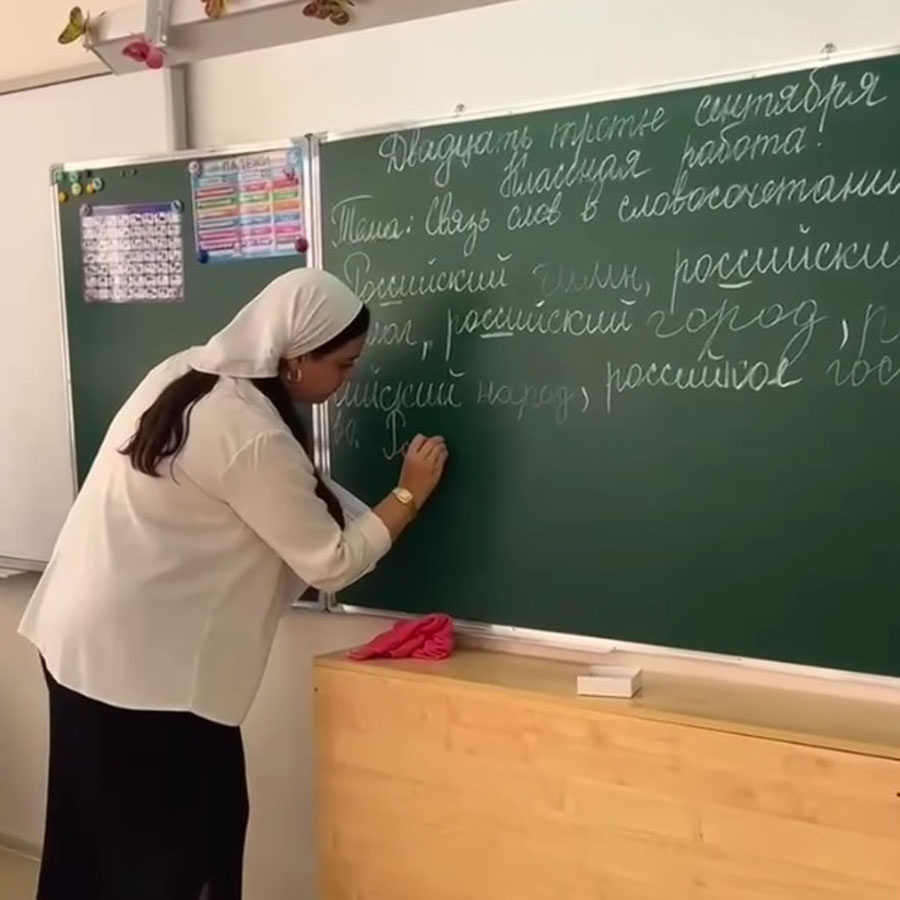 ПАДЕЖИ
Двадцать третье сентября
Классная работа.
Тема: Связь слов в словосочетани
Российский гимн, российски
российский город, р
ийский народ, российское гос
во. Ро